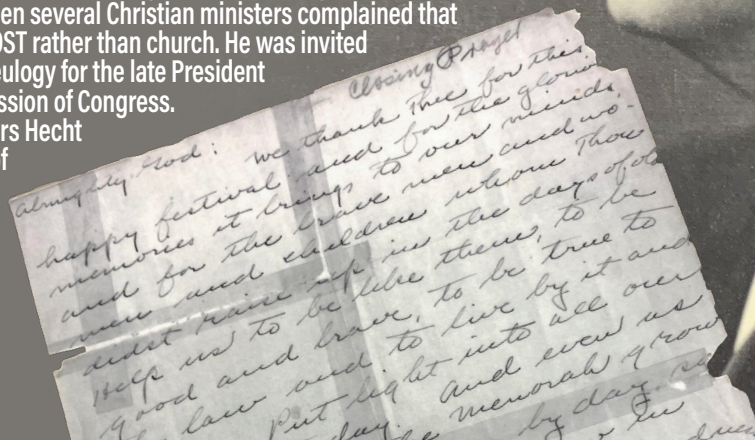 en several Christian ministers complained that
OST rather than church. He was invited
eulogy for the late President
ssion of Congress.
rs Hecht
f
Closing Prayer
Almighty God: We thank Thee for this
happy festival and for the glorious
memories it brings to our minds,
and for the brave men and wo-
men and children whom Thou
didst raise up in the days of old
Help us to be like them, to be
good and brave, to be true to
law and to live by it and
Put light into all our
day. And even as
menorah grow
by day, so
in